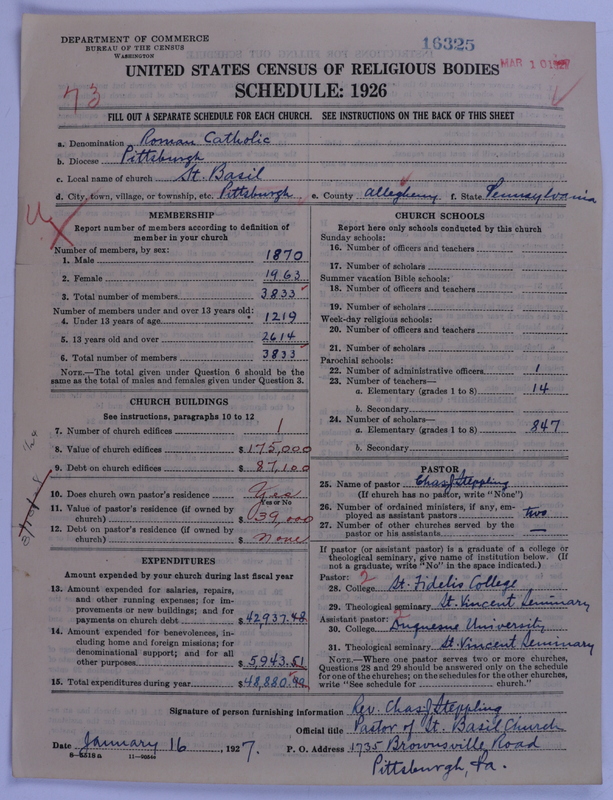 DEPARTMENT OF COMMERCE
BUREAU OF THE CENSUS
WASHINGTON
16325
MAR 10 1927
UNITED STATES CENSUS OF RELIGIOUS BODIES
SCHEDULE: 1926
73
FILL OUT A SEPARATE SCHEDULE FOR EACH CHURCH. SEE INSTRUCTIONS ON THE BACK OF THIS SHEET
a. Denomination Roman Catholic
b. Diocese Pittsburgh
c. Local name of church St. Basil
d. City, town, village, or township, etc. Pittsburgh e. County Allegheny f. State Pennsylvania
MEMBERSHIP
Report number of members according to definition of
member in your church
Number of members, by sex:
1. Male 1870
2. Female 1963
3. Total number of members 3833
Number of members under and over 13 years old:
4. Under 13 years of age 1219
5. 13 years old and over 2614
6. Total number of members 3833
NOTE.—The total given under Question 6 should be
same as the total of males and females given under Question 3.
CHURCH BUILDINGS
See instructions, paragraphs 10 to 12
7. Number of church edifices 1
8. Value of church edifices $175,000
9. Debt on church edifices $87,100
10. Does church own pastor's residence Yes
Yes or No
11. Value of pastor's residence (if owned by
church) $39,000
12. Debt on pastor's residence (if owned by
church) $ None
EXPENDITURES
Amount expended by your church during last fiscal year
13. Amount expended for salaries, repairs,
and other running expenses; for im-
provements or new buildings; and for
payments on church debt $42937.48
14. Amount expended for benevolences, in-
cluding home and foreign missions; for
denominational support; and for all
other purposes $5,943.51
15. Total expenditures during year $48,880.99
CHURCH SCHOOLS
Report here only schools conducted by this church
Sunday schools:
16. Number of officers and teachers
17. Number of scholars
Summer vacation Bible schools:
18. Number of officers and teachers
19. Number of scholars
Week-day religious schools:
20. Number of officers and teachers
21. Number of scholars
Parochial schools:
22. Number of administrative officers 1
23. Number of teachers—
a. Elementary (grades 1 to 8) 14
b. Secondary
24. Number of scholars—
a. Elementary (grades 1 to 8) 847
b. Secondary
PASTOR
25. Name of pastor Chas J Steppling
(If church has no pastor, write "None")
26. Number of ordained ministers, if any, em-
ployed as assistant pastors two
27. Number of other churches served by the
pastor or his assistants —
If pastor (or assistant pastor) is a graduate of a college or
theological seminary, give name of institution below. (If
not a graduate, write "No" in the space indicated.)
Pastor: 2
28. College St. Fidelis College
29. Theological seminary St. Vincent Seminary
Assistant pastor:
30. College Duquesne University
31. Theological seminary St. Vincent Seminary
NOTE.—Where one pastor serves two or more churches,
Questions 28 and 29 should be answered only on the schedule
for one of the churches; on the schedules for the other churches,
write "See schedule for ———— church."
Signature of person furnishing information Rev. Chas J Steppling
Official title Pastor of St. Basil Church
Date January 16, 1927. P. O. Address 1735 Brownsville Road
Pittsburgh, Pa.